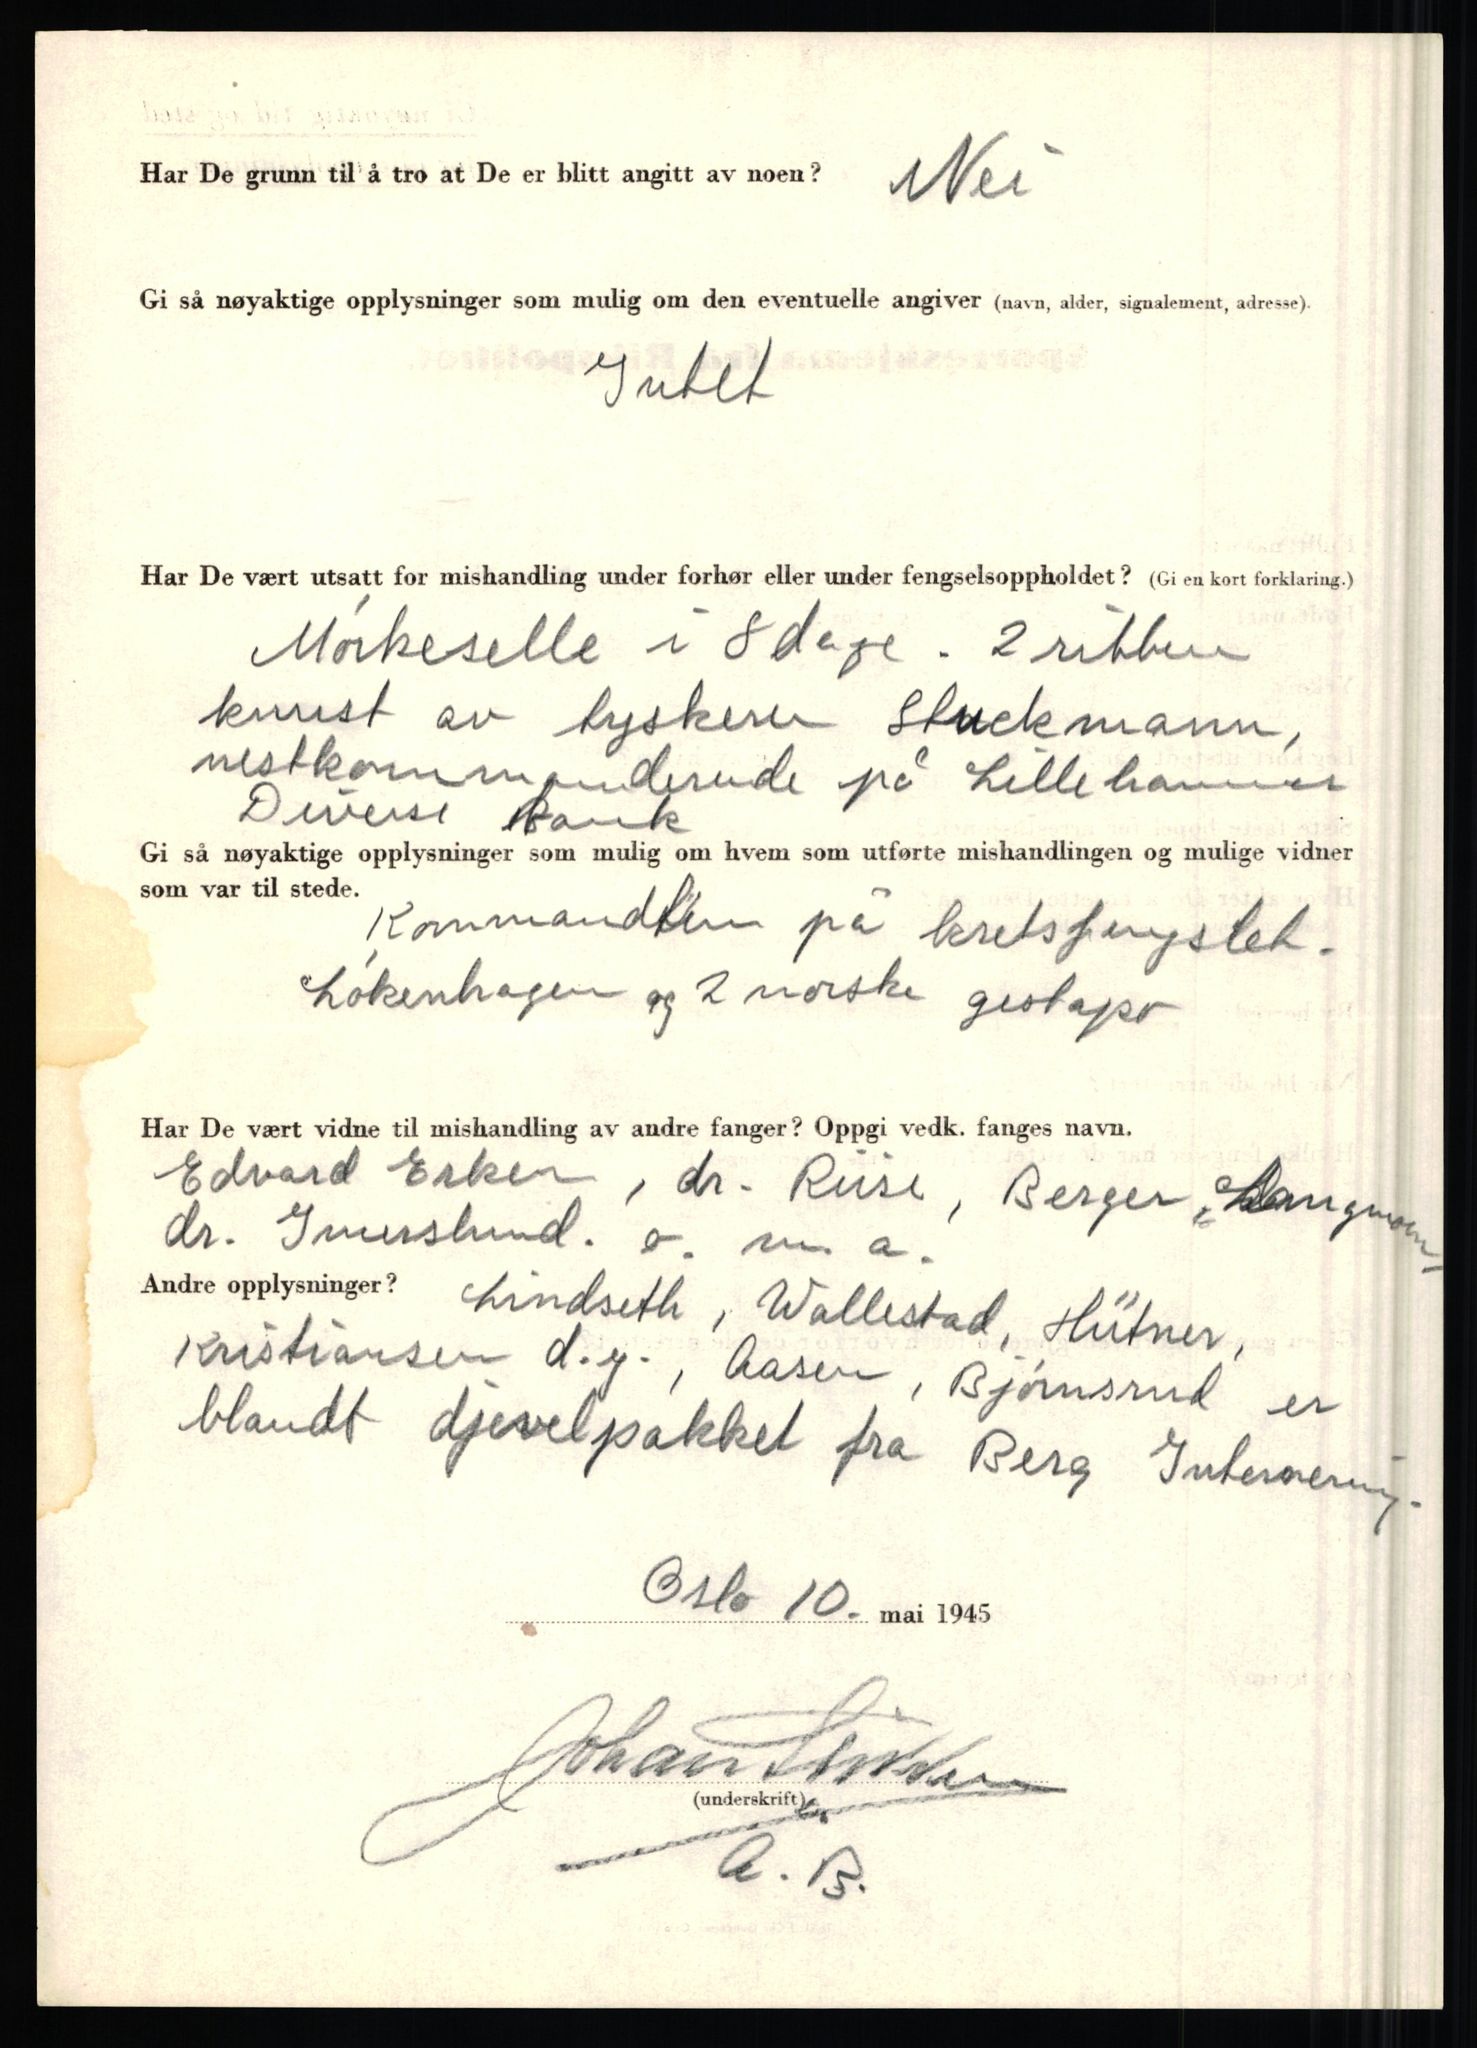 Har De grunn til å tro at De er blitt angitt av noen? Nei
Gi så nøyaktige opplysninger som mulig om den eventuelle angiver (navn, alder, signalement, adresse).
Intet
Har De vært utsatt for mishandling under forhør eller under fengselsoppholdet? (Gi en kort forklaring.)
Mörkeselle i 8 dage. 2 ribben
knust av tyskeren Stuckmann,
nestkommanderende på Lillehammer
Diverse Bank
Gi så nøyaktige opplysninger som mulig om hvem som utførte mishandlingen og mulige vidner
som var til stede.
på kretsfengslet.
Lökenhagen og 2 norske gestapo
Har De vært vidne til mishandling av andre fanger? Oppgi vedk. fanges navn.
Edvard Erken, dr. Riise, Berger Langmoen
dr. Imerslund. o. m. a.
Andre opplysninger? Lindseth, Wallestad, Hütner,
Kristiansen d.y., Aasen, Björnsrud er
blandt djevelpakket fra Berg Internering.
Oslo 10. mai 1945
Johan
(underskrift)
A. B.